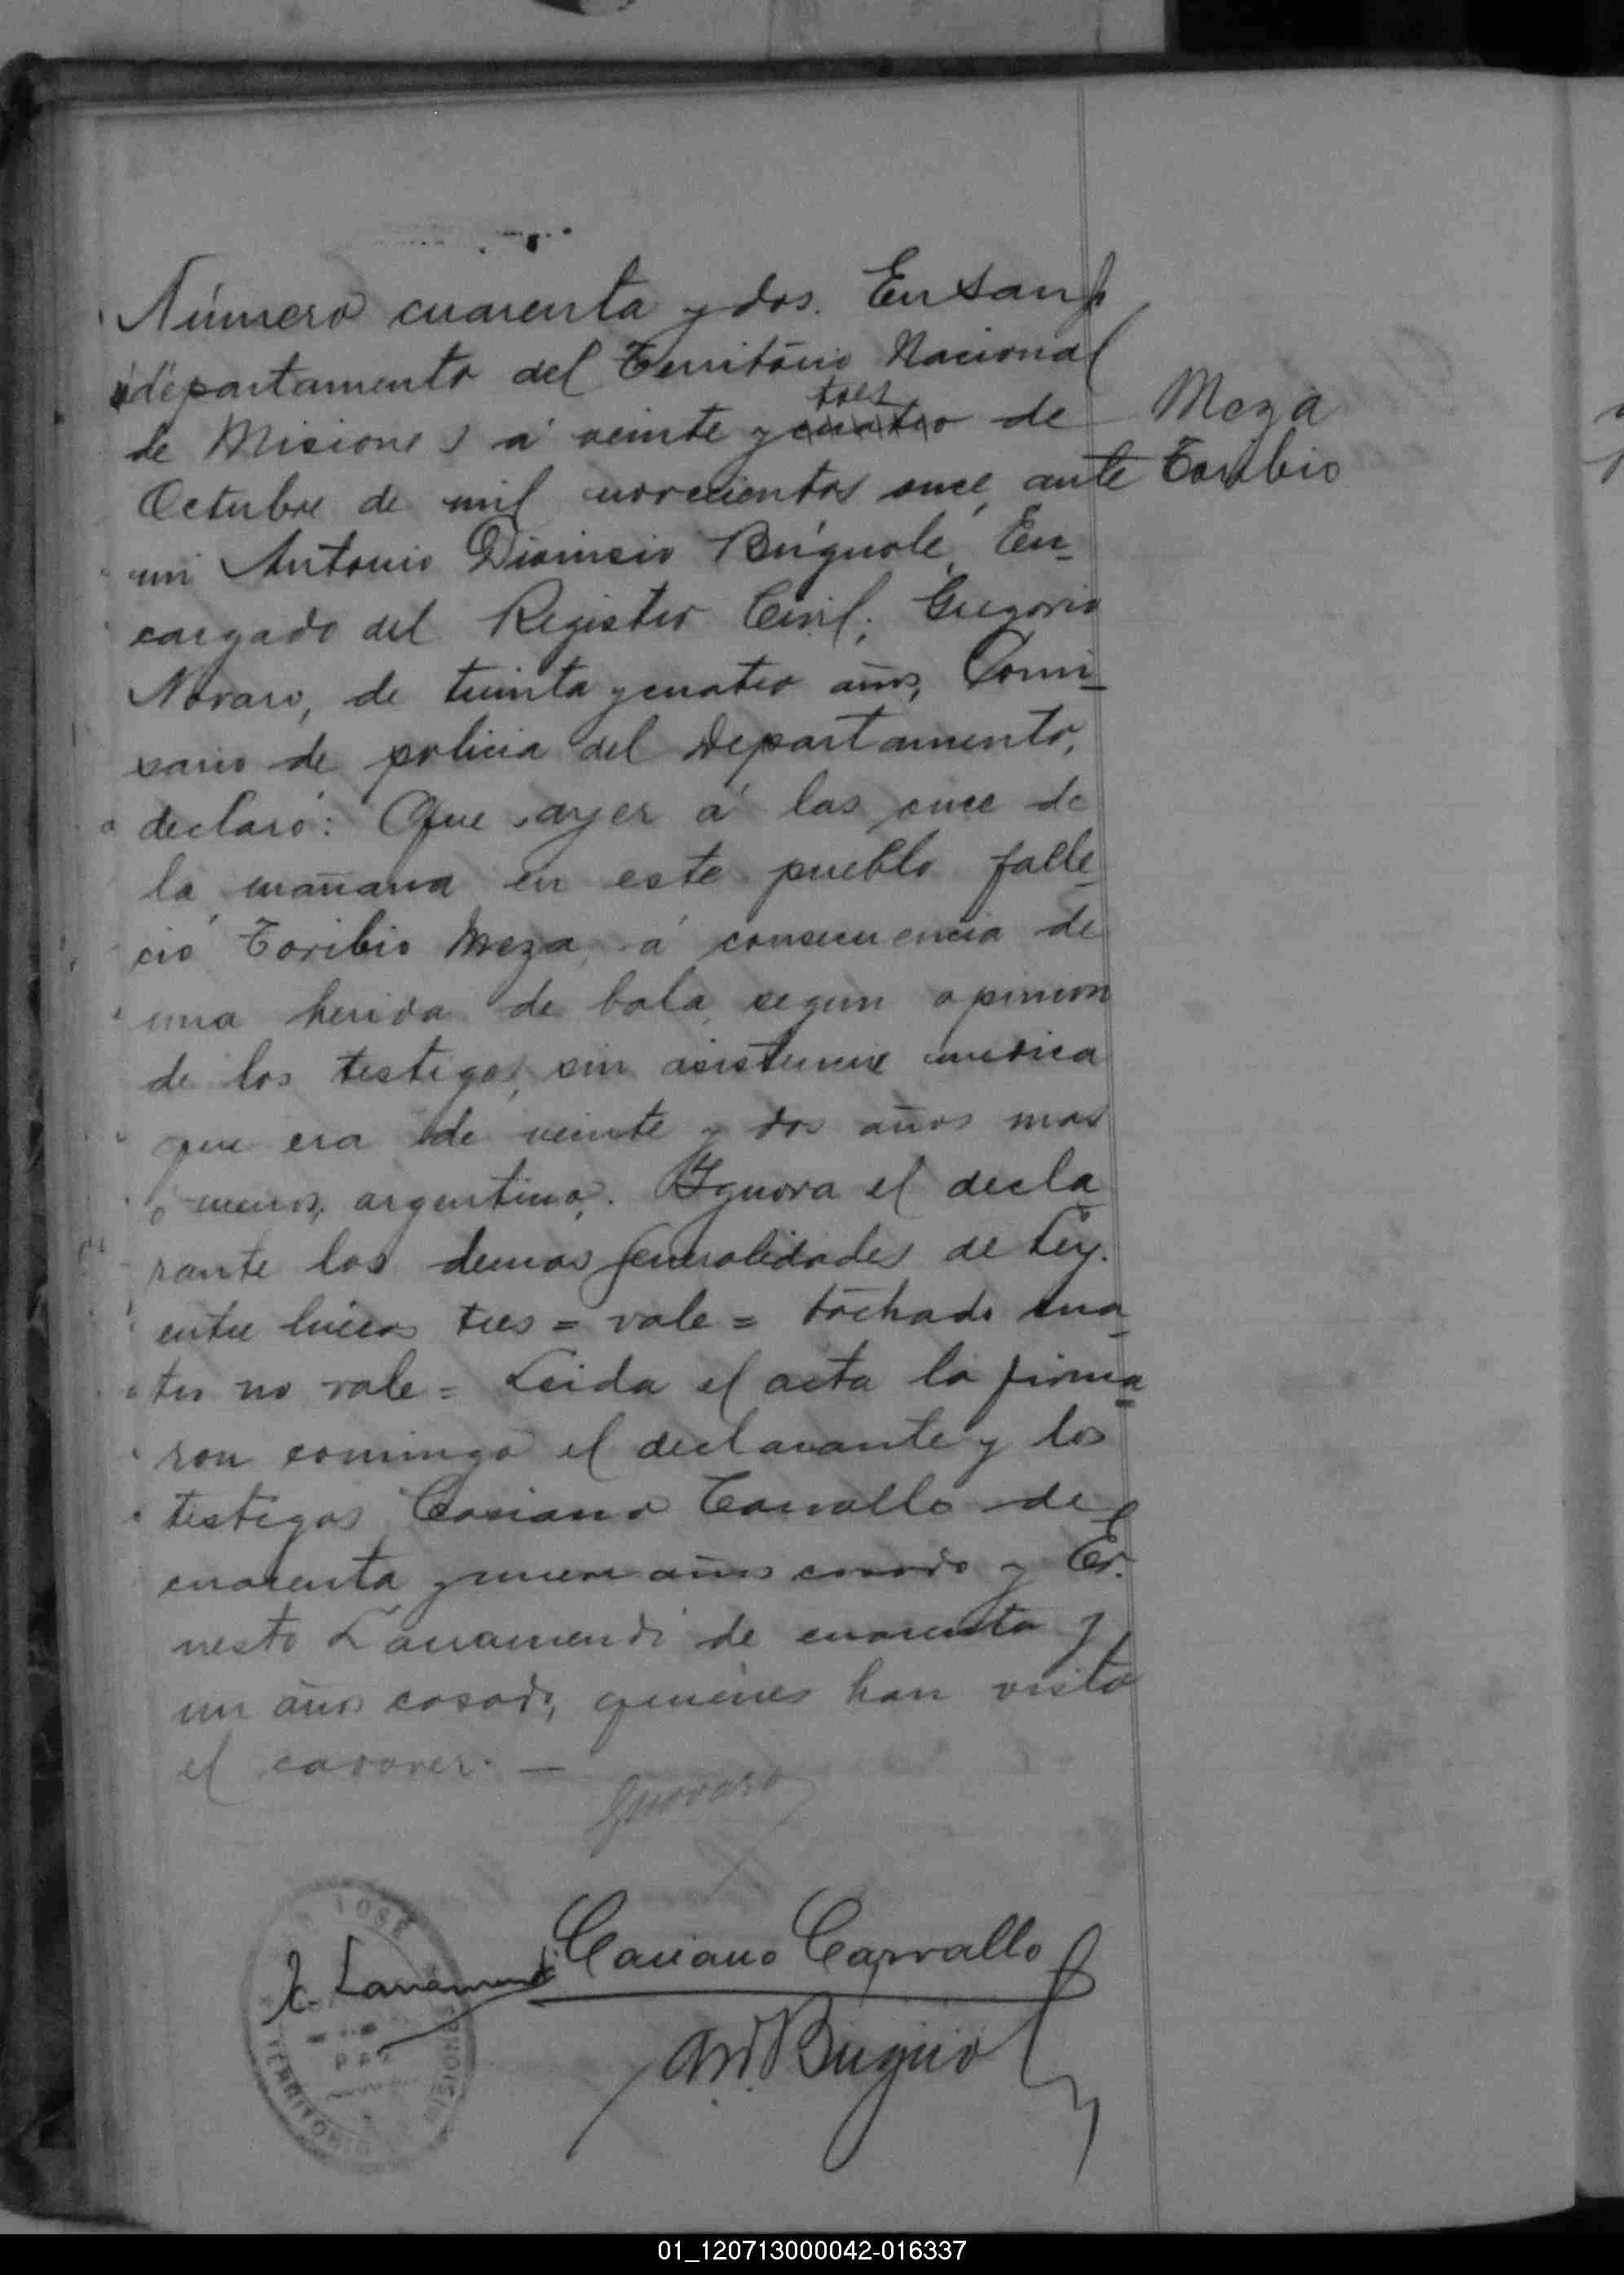 Número cuarenta y dos. En San J.
departamento del Território Nacional
de Misiones á veinte y cuatro de
tres
Meza
Toribio
Octubre de mil novecientos once, ante
mi Antonio Dionisio Búgnole, En-
cargado del Registro Civil; Gregorio
Novaro, de treinta y cuatro años, Comi-
sario de policia del Departamento,
declaró: Que ayer á las once de
la mañana en este pueblo falle-
ció Toribio Meza, á consecuencia de
una herida de bala, segun opinion
de los testigos, sin asistencia medica
que era de veinte y dos años mas
ó menos, argentino. Ignora el decla
rante las demas generalidades de ley.
entre lineas tres = vale = táchado cua-
tro no vale = Leida el acta la firma-
ron conmigo el declarante y los
testigos Casiano Carvallo de
cuarenta y nueve años casado y Er-
nesto Larramendi de cuarenta y
un años casado, quienes han visto
el cadaver. —
GNovaro
JOSÉ
E. Larramendi
Casiano Carvallo
PAZ
TERRITORIO MISIONES
01_120713000042-016337